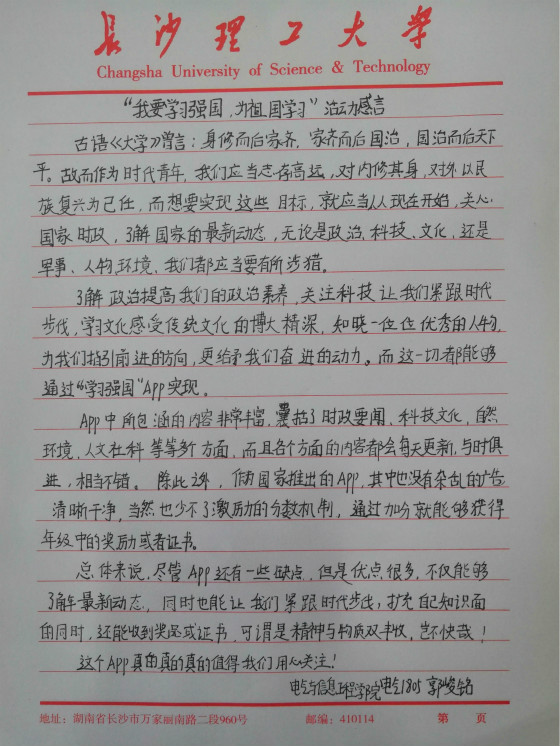 長沙理工大学
Changsha University of Science & Technology
“我要学习强国，为祖国学习”活动感言
古语《大学》曾言：身修而后家齐，家齐而后国治，国治而后天下
平。故而作为时代青年，我们应当志存高远，对内修其身，对外以民
族复兴为己任，而想要实现这些目标，就应当从现在开始，关心
国家时政，了解国家的最新动态，无论是政治、科技、文化，还是
军事、人物、环境、我们都应当要有所涉猎。
了解政治提高我们的政治素养，关注科技让我们紧跟时代
步伐，学习文化感受传统文化的博大精深，知晓一位位优秀的人物，
为我们指引前进的方向，更给予我们奋进的动力。而这一切都能够
通过“学习强国”App实现。
App中所包涵的内容非常丰富，囊括了时政要闻、科技文化、自然
环境、人文社科等等多个方面，而且各个方面的内容都会每天更新，与时俱
进，相当不错。除此之外，作为国家推出的App，其中也没有杂乱的广告
清晰干净，当然也少不了激励的分数机制，通过加分就能够获得
年级中的奖励或者证书。
总体来说，尽管App还有一些缺点，但是优点很多，不仅能够
了解最新动态，同时也能让我们紧跟时代步伐；扩充自己知识面
的同时，还能收到奖品或证书，可谓是精神与物质双丰收，岂不快哉！
这个App真的真的真的值得我们用心关注！
电气与信息工程学院电气1805 郭峻铭
地址：湖南省长沙市万家丽南路二段960号 邮编：410114 第 页